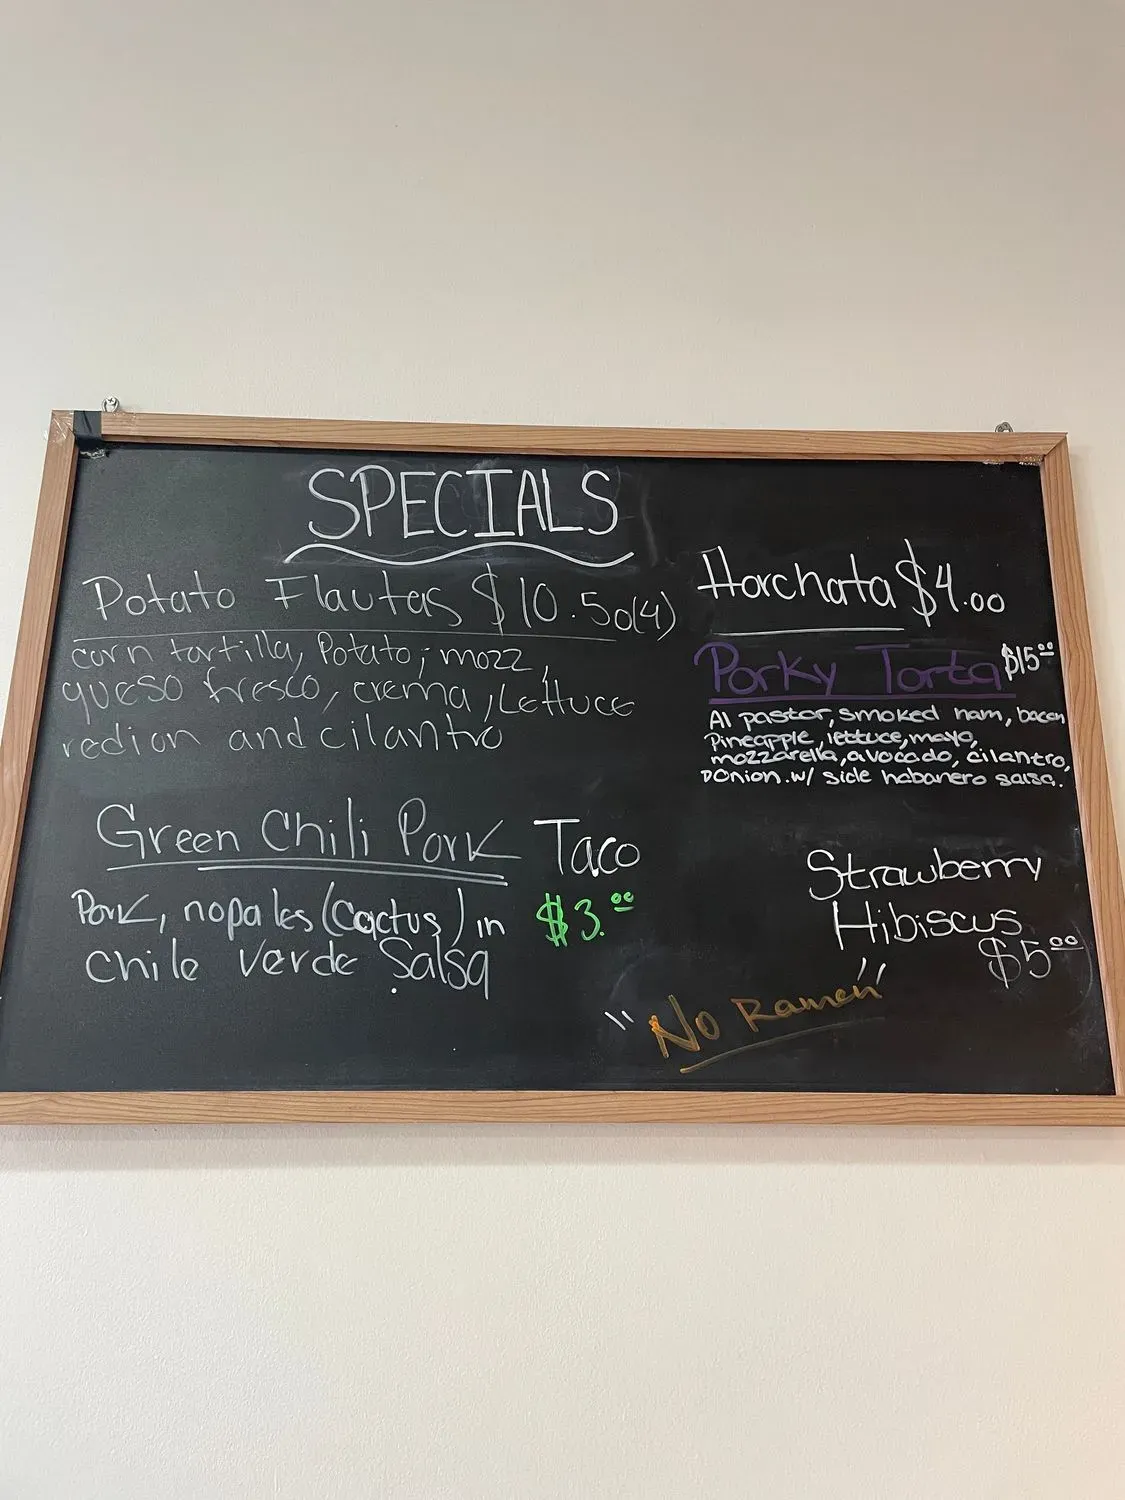 SPECIALS
Potato Flautas $10.50(4)
corn tortilla, Potato, mozz,
queso fresco, crema, Lettuce
redion and cilantro
Green Chili Pork Taco
Pork, nopales (Cactus) in $3.00
chile verde Salsa
Horchata $4.00
Porky Torta $15.00
Al pastor, smoked ham, bacon
Pineapple, lettuce, mayo,
mozzarella, avocado, cilantro,
Onion. w/ side habanero salsa.
Strawberry
Hibiscus
$5.00
"No Ramen"